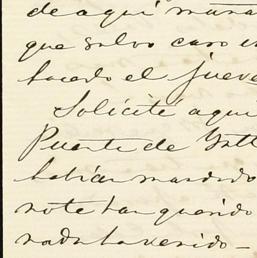 de aquí maña
que salvo caso
hacerlo el jueve
Solicité aquí
Puente de
habían mandado
no te han querido
nada ha venido —